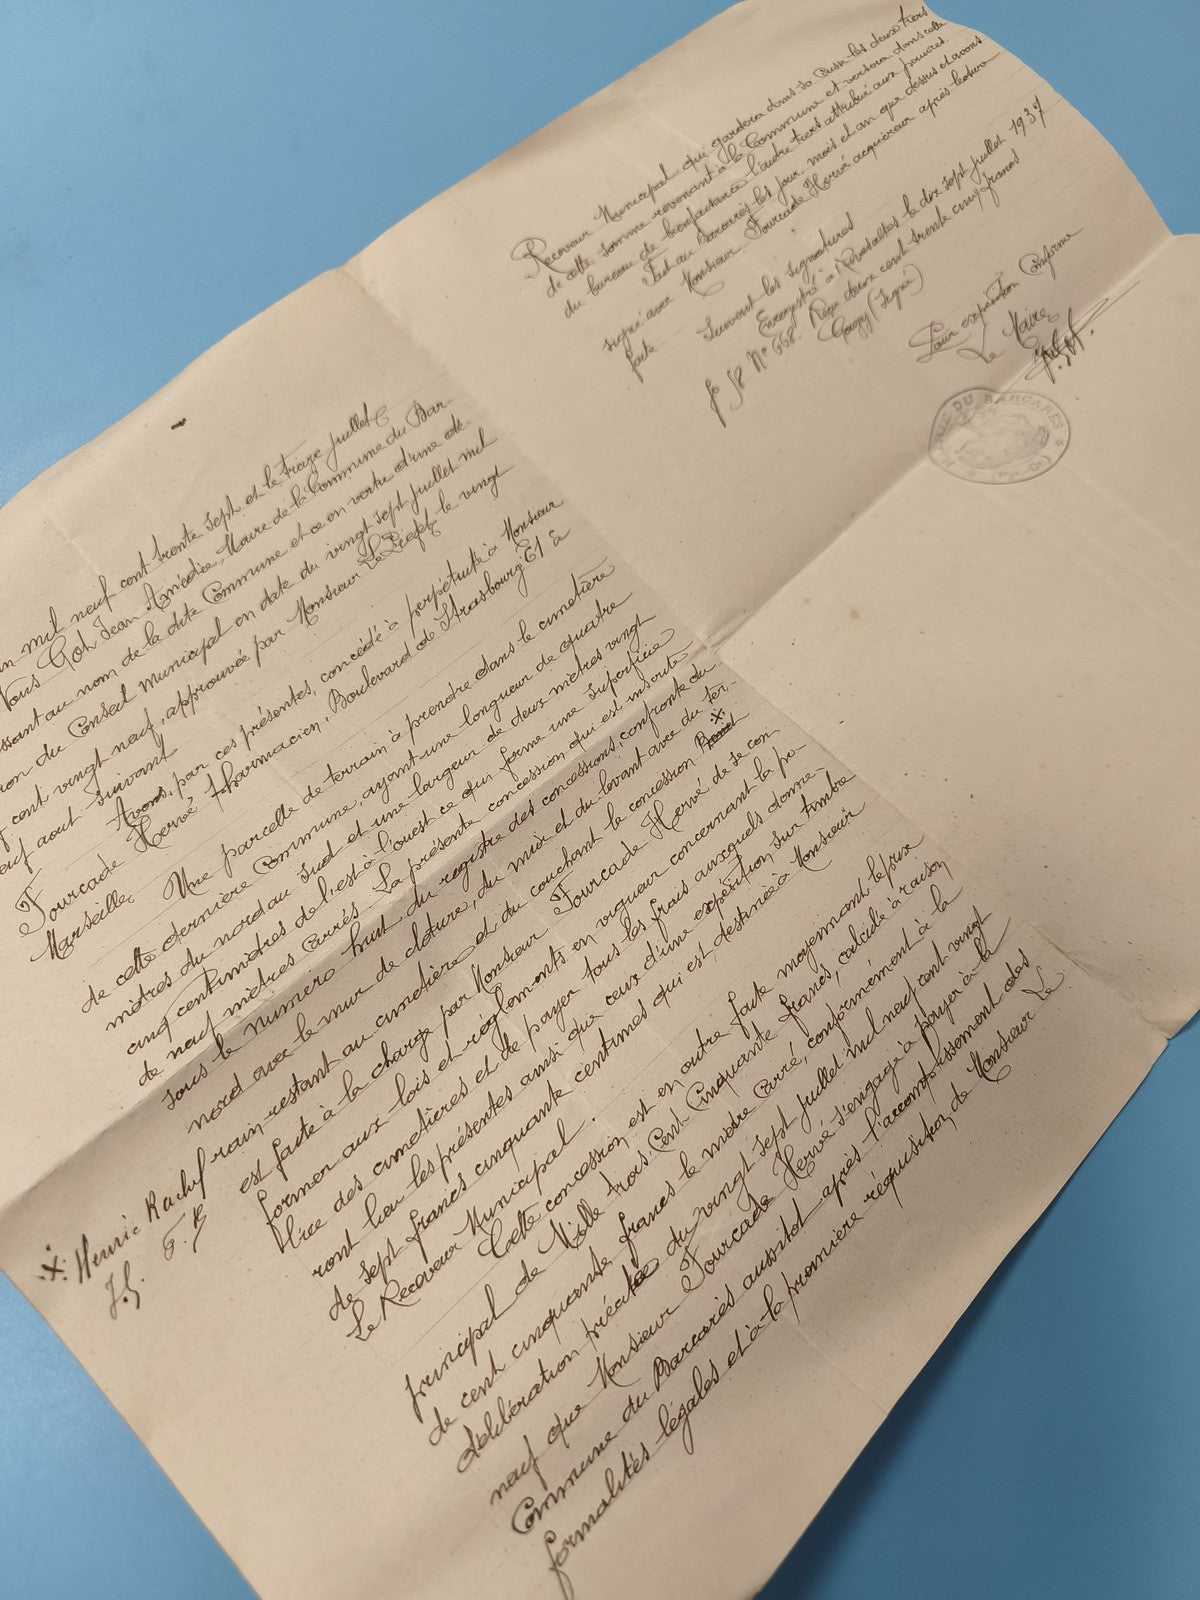 n mil neuf cent trente sept et le treize juillet
Nous Goh Jean Amédée, Maire de la Commune du Bar-
ssant au nom de la dite Commune et ce en vertu d'une dé-
ion du Conseil Municipal en date du vingt sept juillet mil
f cent vingt neuf, approuvée par Monsieur Le Préfet le vingt
euf aout suivant
Avons, par ces présentes, concédé à perpétuité à Monsieur
Fourcade Hervé Pharmacien, Boulevard de Strasbourg 61 à
Marseille
Une parcelle de terrain à prendre dans le cimetière
de cette dernière Commune, ayant une longueur de quatre
mètres du nord au sud et une largeur de deux mètres vingt
cinq centimètres de l'est à l'ouest ce qui forme une superficie
de neuf mètres carrés. La présente concession qui est inscrite
sous le numéro huit du registre des concessions, confronte du
nord avec le mur de cloture, du midi et du levant avec du ter-
rain restant au cimetière et du couchant la concession .X.
est faite à la charge par Monsieur Fourcade Hervé de se con
former aux lois et réglements en vigueur concernant la po
lice des cimetières et de payer tous les frais auxquels donne-
ront lieu les présentes ainsi que ceux d'une expédition sur timbre
de sept francs cinquante centimes qui est destinée à Monsieur
Le Receveur Municipal.
Cette concession est en outre faite moyennant le prix
principal de Mille trois Cent Cinquante francs, calculé à raison
de cent cinquante francs le mètre Carré, conformément à la
délibération précitée du vingt sept juillet mil neuf cent vingt
neuf que Monsieur Fourcade Hervé s'engage à payer à la
Commune du Barcarès aussitot après l'accomplissement des
formalités légales et à la première réquisition de Monsieur Le
.X. Henric Rachef
J.G. F.H
Receveur Municipal qui gardera dans sa Caisse les deux tiers
de cette somme revenant à la Commune et versera dans celle
du bureau de bienfaisance l'autre tiers attribué aux pauvres.
Fait au Barcarès les jour, mois et an que dessus et avons
signé avec Monsieur Fourcade Hervé acquéreur après lecture
faite
Suivent les signatures
Enregistré à Rivesaltes le dix sept juillet 1937
f° 58 N° 668. Reçu deux cent trente cinq francs
(Signé)
Pour expédition Conforme
Le Maire
MAIRIE DU BARCARES